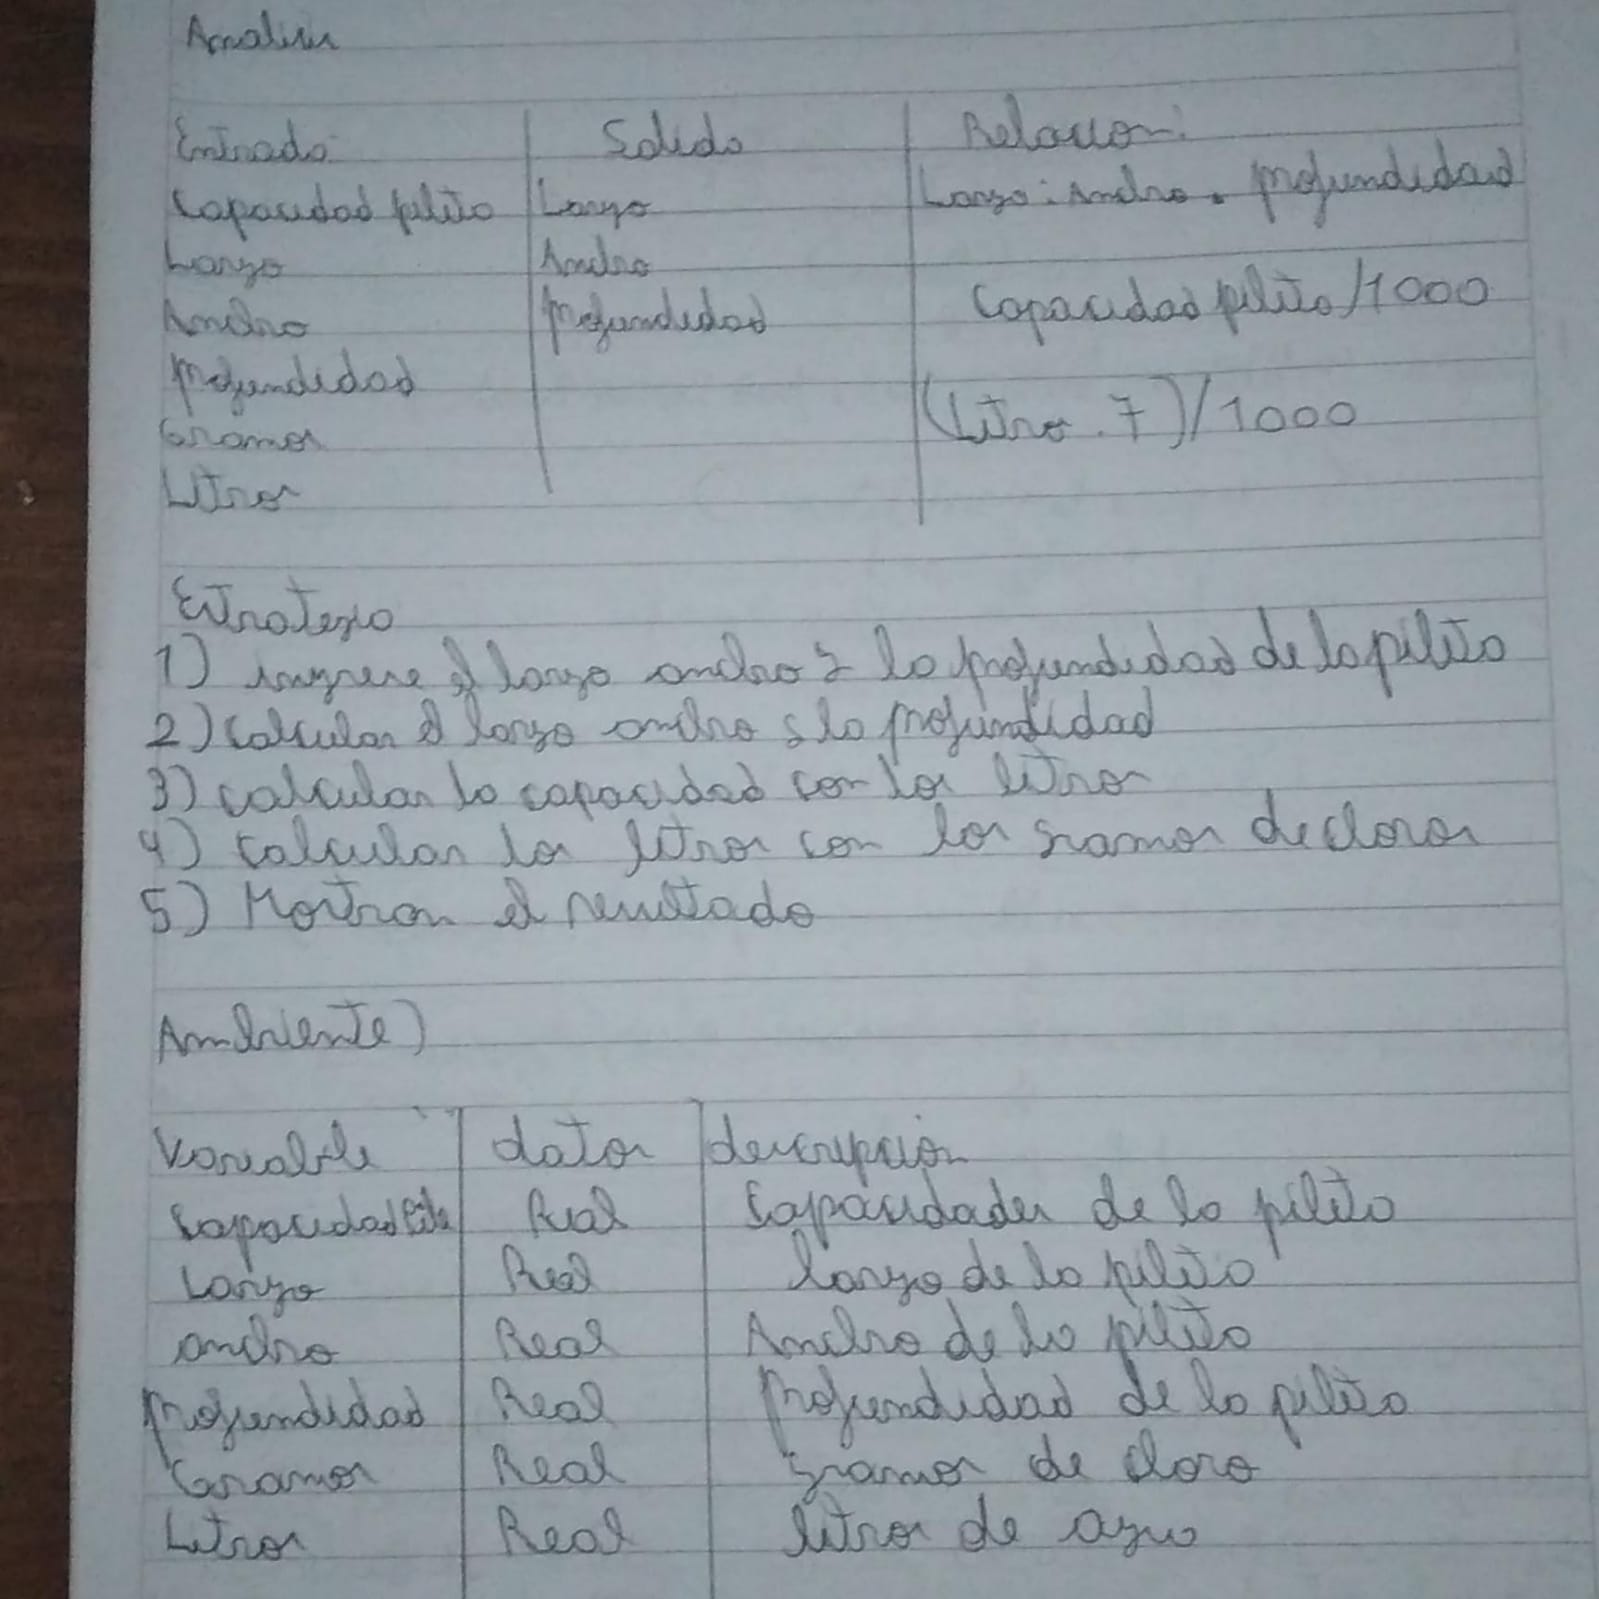 Analisis
Entrada Salida Relacion:
Capacidad pileta Largo Largo . Ancho . profundidad
Largo Ancho
Ancho profundidad Capacidad pileta/1000
profundidad
Gramos (Litros . 7)/1000
Litros
Estrategia
1) ingrese el largo ancho y la profundidad de la pileta
2) calcular el largo ancho y la profundidad
3) calcular la capacidad con los litros
4) calcular los litros con los gramos de cloros
5) Mostrar el resultado
Ambiente)
Variable datos descripcion
Capacidad Real Capacidades de la pileta
Largo Real largo de la pileta
ancho Real Ancho de la pileta
profundidad Real profundidad de la pileta
Gramos Real gramos de cloro
Litros Real litros de agua